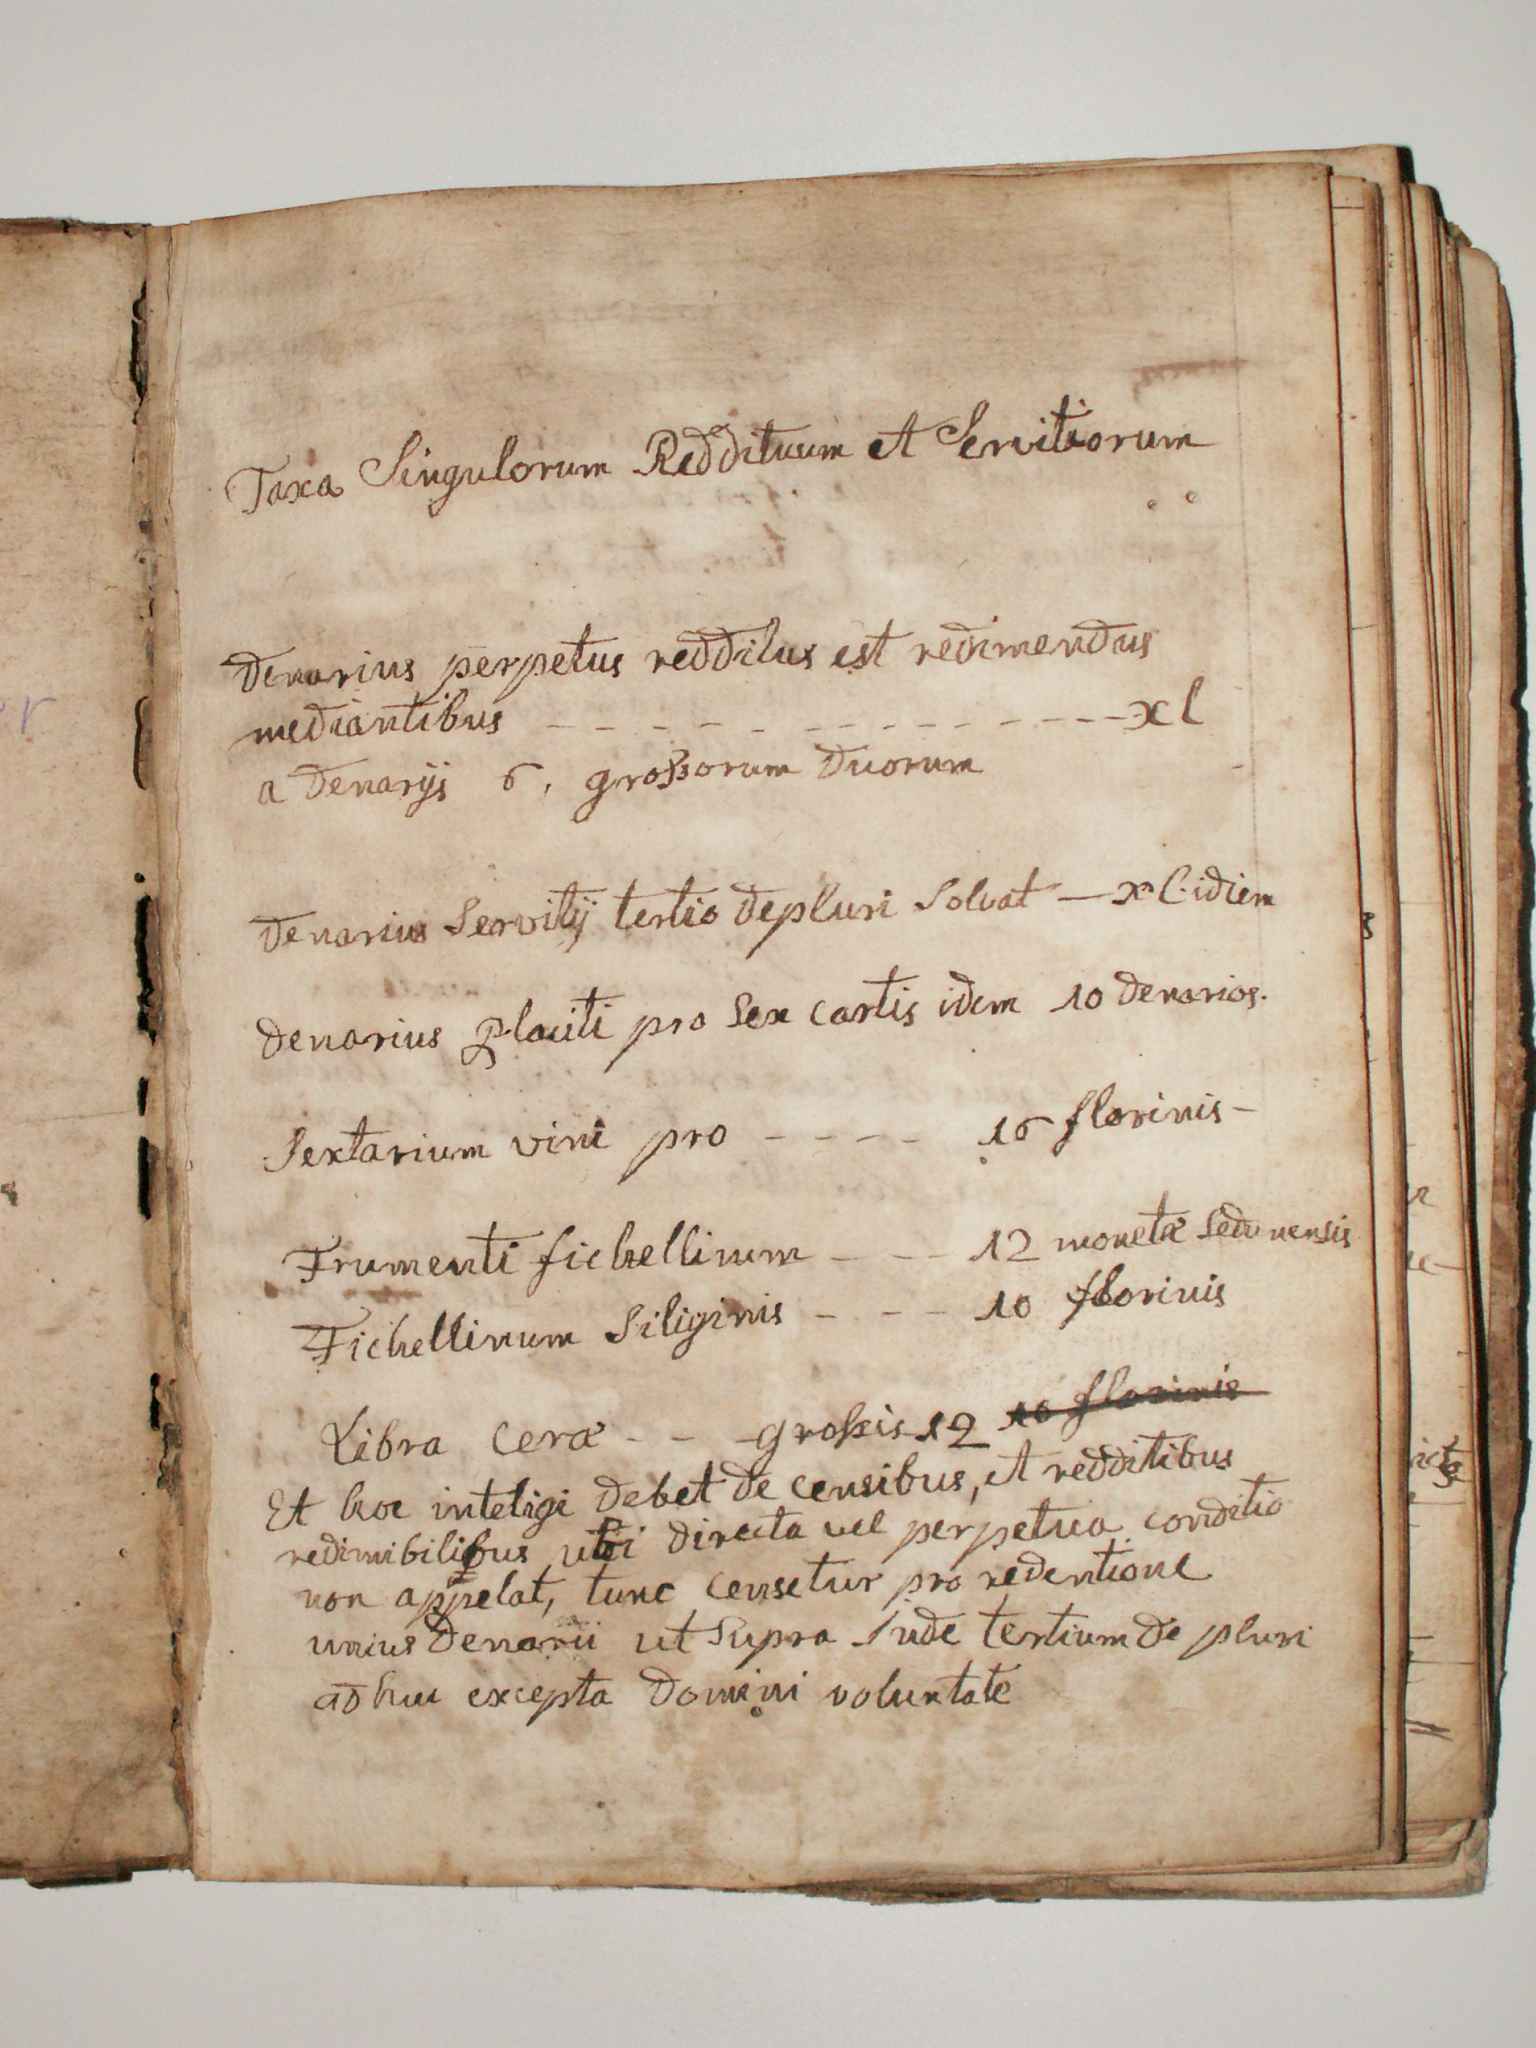 Taxa Singulorum Reddituum et Servitiorum
Denarius perpetus redditus est redimendus
mediantibus - - - - - - - - - - - - - xl
a denarijs 6, grossorum duorum
Denarius Servitij tertio depluri Solvat — xl idiem
Denarius placiti pro Sex cartis idem 10 denarios.
Sextarium vini pro - - - - 16 florinis -
Frumenti fichellinum - - - 12 monetæ Sedunensis
Fichellinum Siliginis - - - 10 florinis
Libra Ceræ - - - grossis 12 10 florinis
Et hoc inteligi debet de censibus, et redditibus
redimibilibus ubi directa vel perpetua conditio
non appelat, tunc censetur pro redentione
unius denarii ut Supra Inde tertium de pluri
adhuc excepta domini voluntate